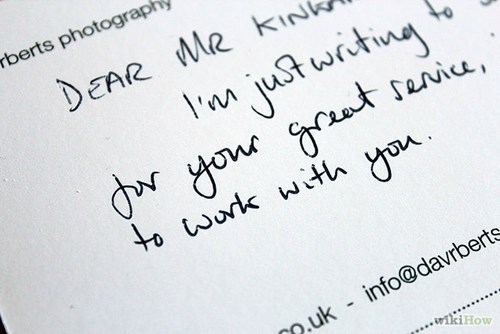 rberts photography
DEAR MR
I'm just writing to
for your great service,
to work with you.
co.uk - info@davrberts
wikiHow